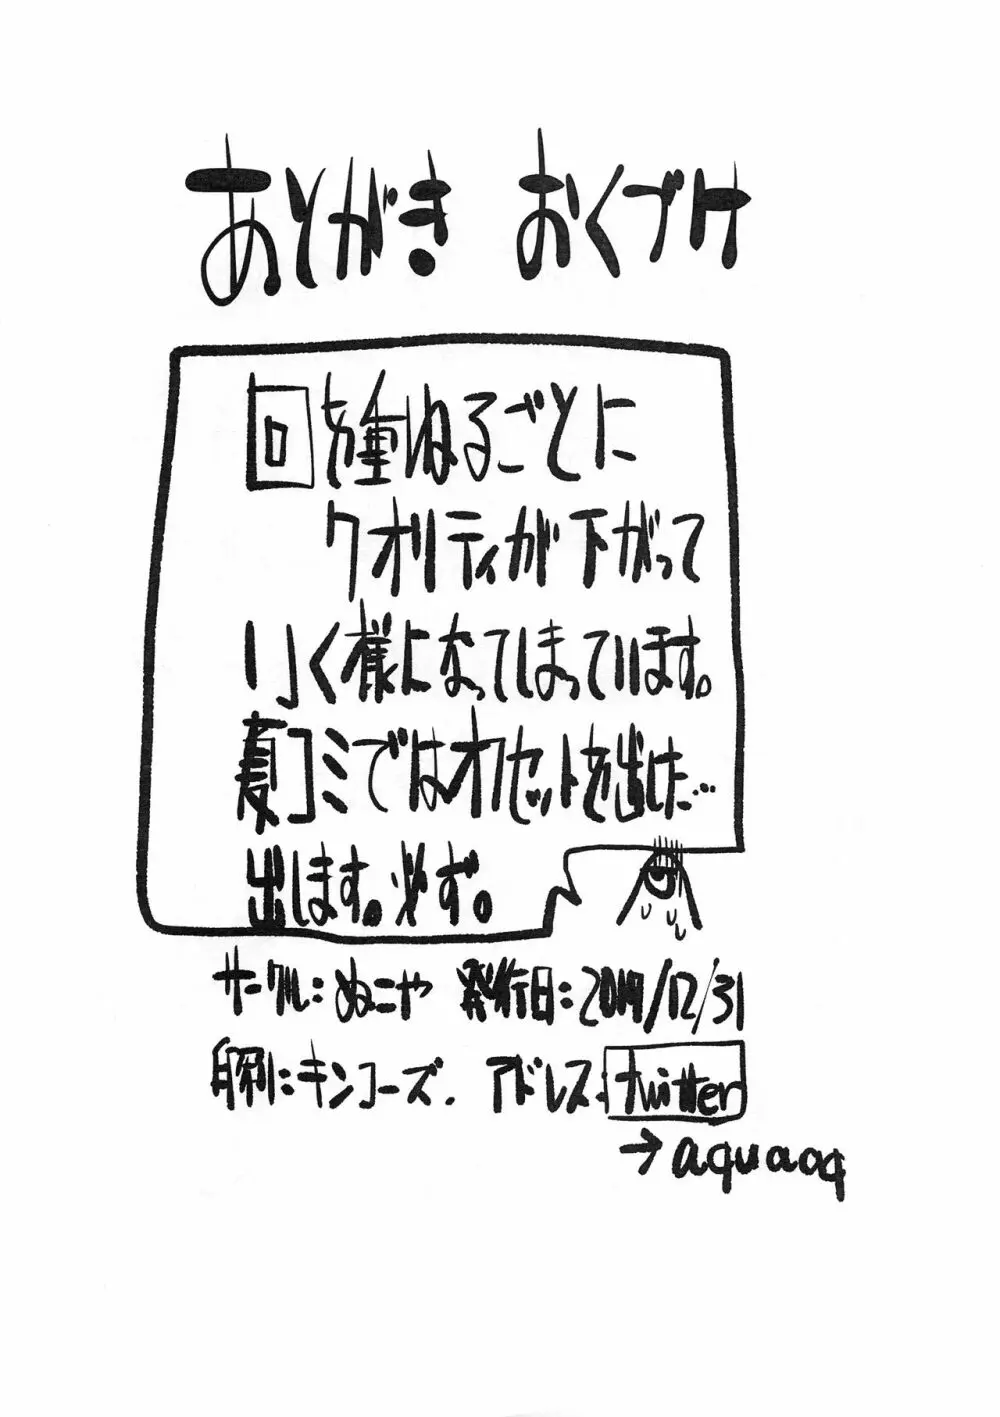 あとがき おくづけ
回を重ねるごとに
クオリティが下がって
いく様になってしまっています。
夏コミではオフセットを出した…
出します。必ず。
サークル:ぬこや 発行日:2017/12/31
印刷:キンコーズ. アドレス:twitter
→aquaaq